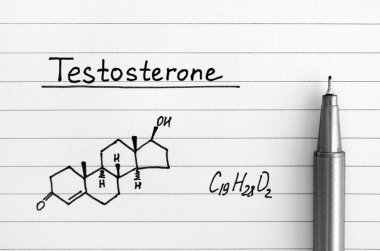 Testosterone
OH
H
H H
O
C19H28O2